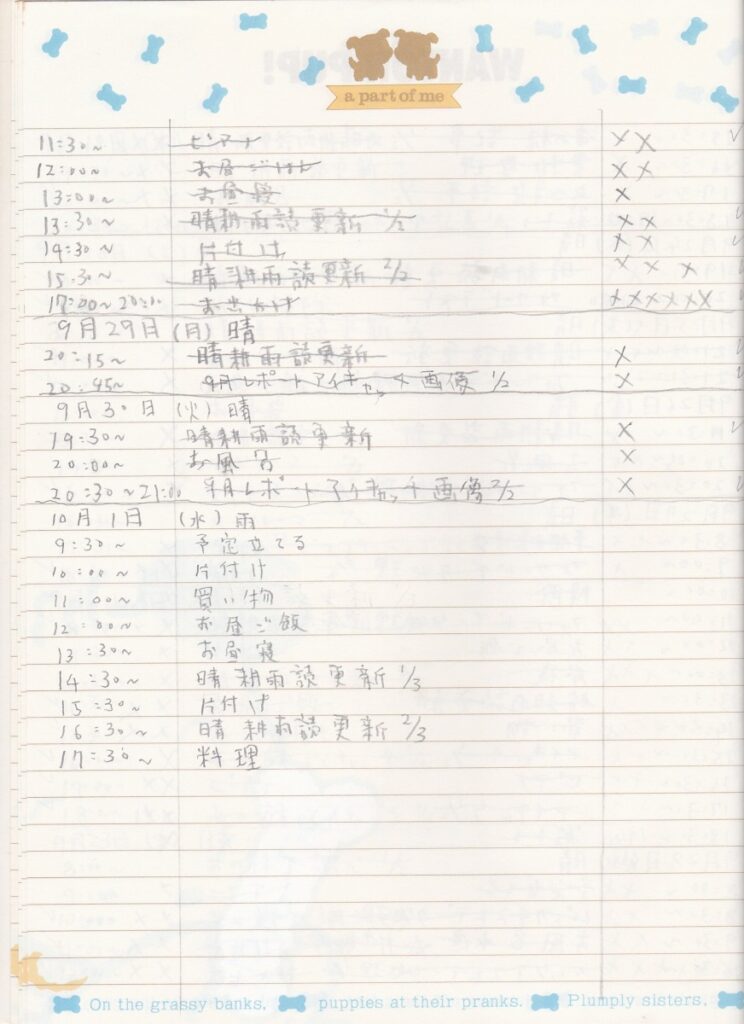 a part of me
11:30~ ピアノ ××
12:00~ お昼ごはん ××
13:00~ お昼寝 ×
13:30~ 晴耕雨読更新 1/2 ××
14:30~ 片付け ××
15:30~ 晴耕雨読更新 2/2 ×××
17:00~20:00 お出かけ ××××××
9月29日(月)晴
20:15~ 晴耕雨読更新 ×
20:45~ 9月レポートアイキャッチ画像 1/2 ×
9月30日(火)晴
19:30~ 晴耕雨読更新 ×
20:00~ お風呂 ×
20:30~21:00 9月レポートアイキャッチ画像 2/2 ×
10月1日(水)雨
9:30~ 予定立てる
10:00~ 片付け
11:00~ 買い物
12:00~ お昼ご飯
13:30~ お昼寝
14:30~ 晴耕雨読更新 1/3
15:30~ 片付け
16:30~ 晴耕雨読更新 2/3
17:30~ 料理
On the grassy banks, puppies at their pranks. Plumply sisters.